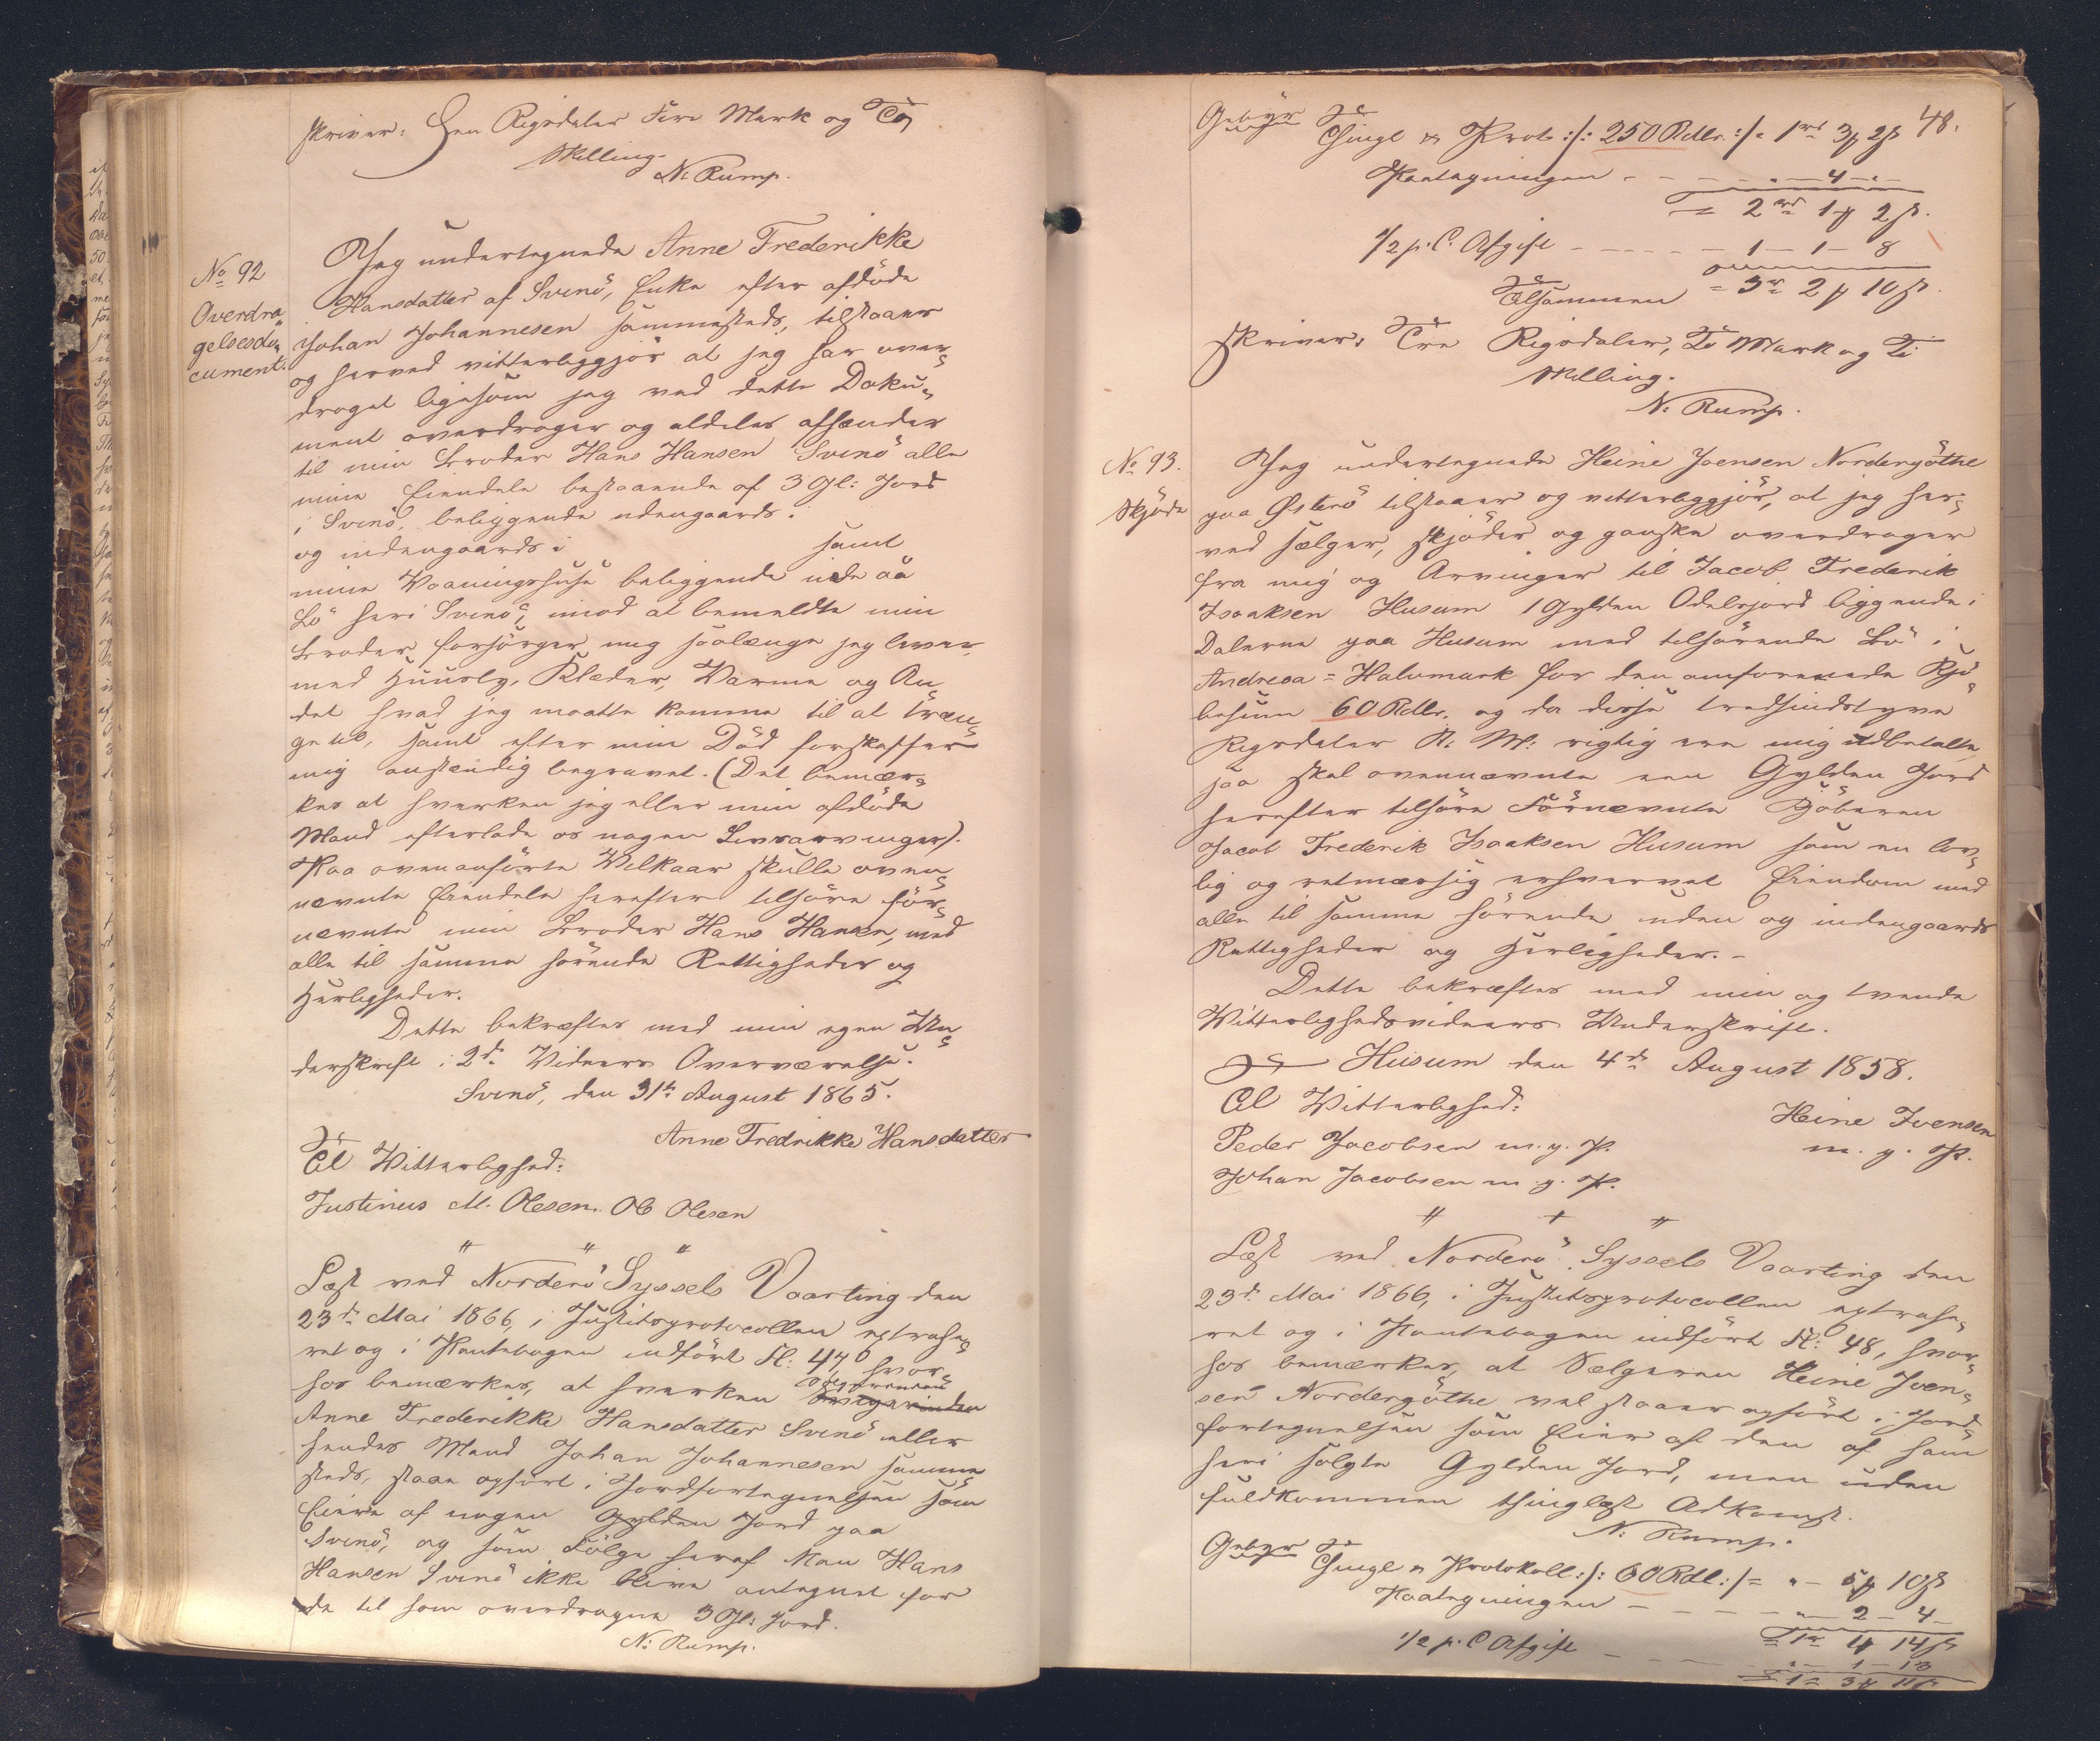 skriver: Een Rigsdaler Fire Mark og To
Skilling.
N: Rump.
No 92
Overdra„
gelsesdo„
cument.
Jeg undertegnede Anne Frederikke
Hansdatter af Svinö, Enke efter afdöde
Johan Johannesen sammesteds, tilstaaer
og herved vitterliggjör at jeg har over„
draget ligesom jeg ved dette Doku„
ment overdrager og aldeles afhænder
til min Broder Hans Hansen Svinö alle
mine Eiendele bestaaende af 3 Gl: Jord
i Svinö, beliggende udengaards.
og indengaards i samt
mine Vaaningshuse beliggende
Bö heri Svinö, imod at bemeldte min
Broder forsörger mig saalænge jeg lever,
med Huusly, Klæder, Varme og An
det hvad jeg maatte komme til at træn„
ge til, samt efter min Död forskaffer
mig anstændig begravet. (Det bemær„
kes at hverken jeg eller min afdöde
Mand efterlade os nogen Livsarvinger).
Paa ovenanförte Vilkaar skulle oven„
nævnte Eiendele herefter tilhöre för„
nævnte min Broder Hans Hansen, med
alle til samme hörende Rettigheder og
Herligheder.
Dette bekræftes med min egen Un„
derskrift i 2de Vidners Overværelse.
Svinö, den 31te August 1865.
Anne Fredrikke Hansdatter
Til Vitterlighed:
Justinus M. Olesen. Ob Olesen
Læst ved Norderö Syssels Vaarting den
23de Mai 1866, i Justitsprotocollen extrahe„
ret og i Pantebogen indfört Fl: 47, hvor„
hos bemærkes, at hverken
Anne Frederikke Hansdatter Svinö eller
hendes Mand Johan Johannesen samme
steds, staae opfört i Jordfortegnelsen som
Eiere af nogen Gylden Jord paa
Svinö, og som Fölge heraf kan Hans
Hansen Svinö ikke blive antegnet for
de til ham overdragne 3 Gl: Jord.
N: Rump.
48.
Gebyr
Thingl & Prot :/: 250 Rdlr. :/= 1rd 3 2
Paategningen - - - 4 -
= 2rd 1 2
1/2 p. C. Afgift - - - 1 - 1 - 8
Tilsammen = 3rd 2 10
skriver: Tre Rigsdaler, To Mark og Ti
Skilling.
N: Rump.
No 93.
Skjöde
Jeg undertegnede Heine Joensen Nordergöthe
paa Österö tilstaaer og vitterliggjör, at jeg her„
ved sælger, skjöder og ganske overdrager
fra mig og Arvinger til Jacob Frederik
Isaaksen Husum 1 Gylden Odelsjord liggende i
Dalerne paa Husum med tilhörende Bö i
Andresa = Halvmark for den omforenede Kjö„
besum 60 Rdlr. og da disse tredsindstyve
Rigsdaler R: M: rigtig ere mig udbetalte,
saa skal ovennævnte een Gylden Jord
herefter tilhöre Förnævnte Kjöberen
Jacob Frederik Isaaksen Husum som en lov„
lig og retmæssig erhvervet Eiendom med
alle til samme hörende uden og indengaards
Rettigheder og Herligheder. -
Dette bekræftes med min og tvende
Vitterlighedsvidners Underskrift.
Husum den 4de August 1858.
Til Vitterlighed:
Heine Ioensen
m. g. P.
Peder Jacobsen m. g. P.
Johan Jacobsen m. g. P.
Læst ved Norderö Syssels Vaarting den
23de Mai 1866, i Justitsprotocollen extrahe„
ret og i Pantebogen indfört Fl: 48, hvor„
hos bemærkes, at Sælgeren Heine Joen„
sen Nordergöthe vel staaer opfört i Jord„
fortegnelsen som Eier af den af ham
heri solgte Gylden Jord, men uden
fuldkommen thinglæst Adkomst.
N: Rump.
Gebyr
Thingl & Protokoll :/: 60 Rdl: /= „ - 5 10
Paategningen - - - „ - 2 - 4 -
= 1rd 14
1/2 p. C Afgift